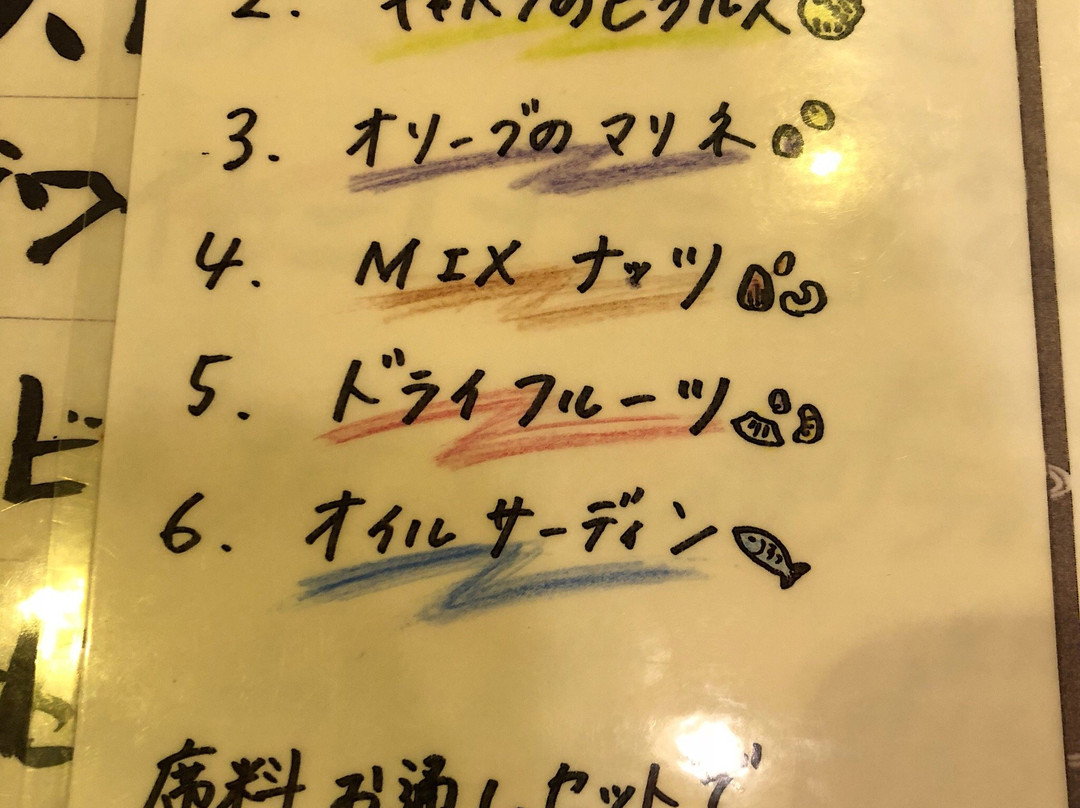 2. キャベツのピクルス
3. オリーブのマリネ
4. MIX ナッツ
5. ドライフルーツ
6. オイルサーディン
席料お通しセットで